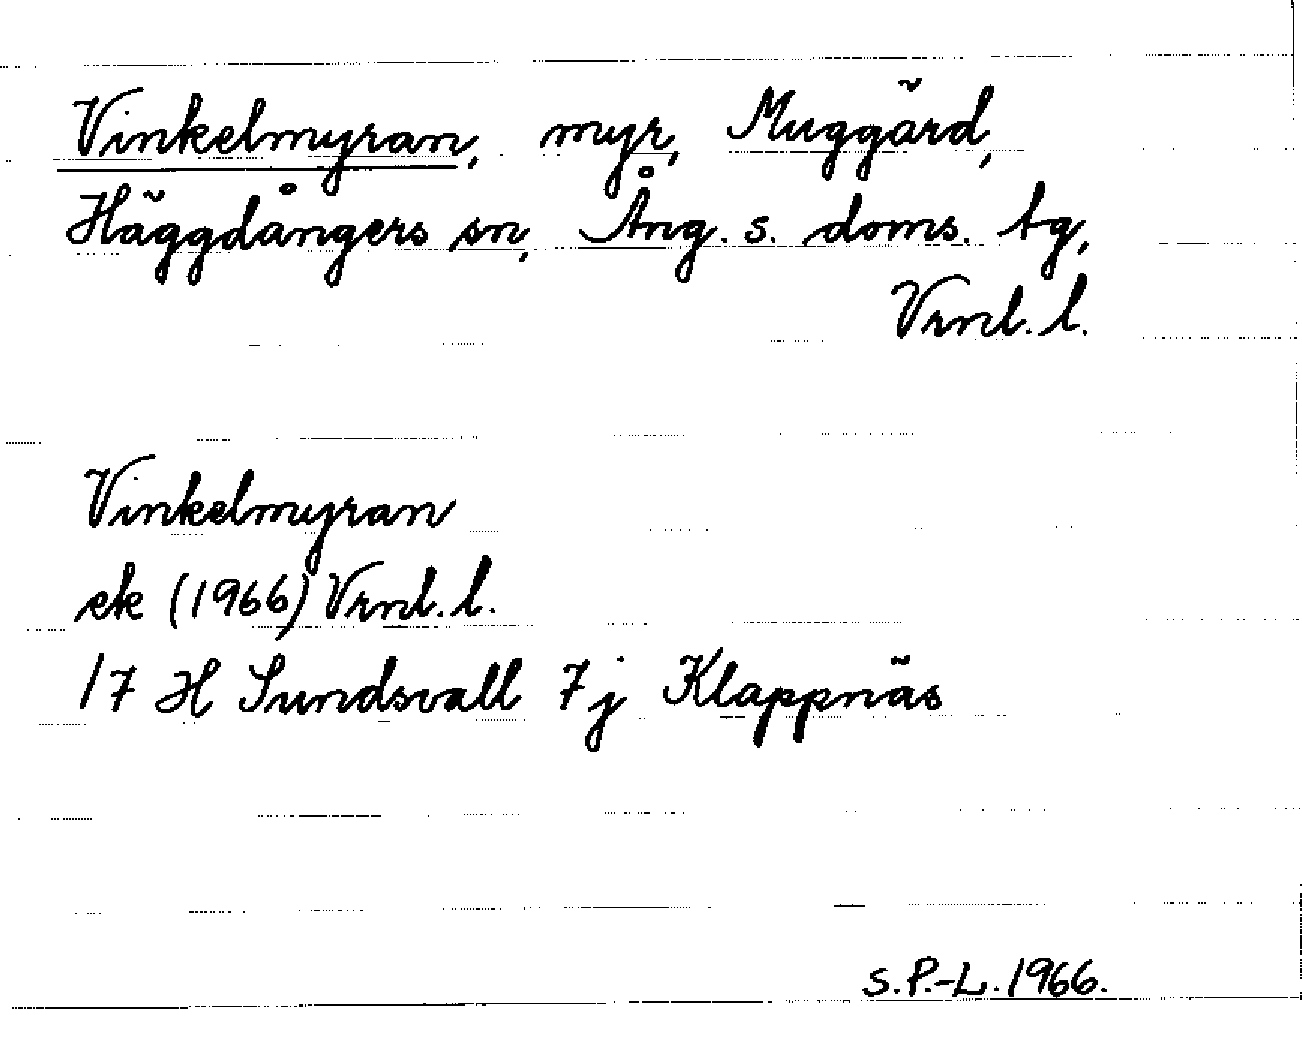 Vinkelmyran, myr, Muggärd,
Häggdångers sn, Ång. s. doms. tg,
Vrnl. l.
Vinkelmyran
ek (1966) Vrnl. l.
17 H Sundsvall 7j Klappnäs
S.P.-L. 1966.